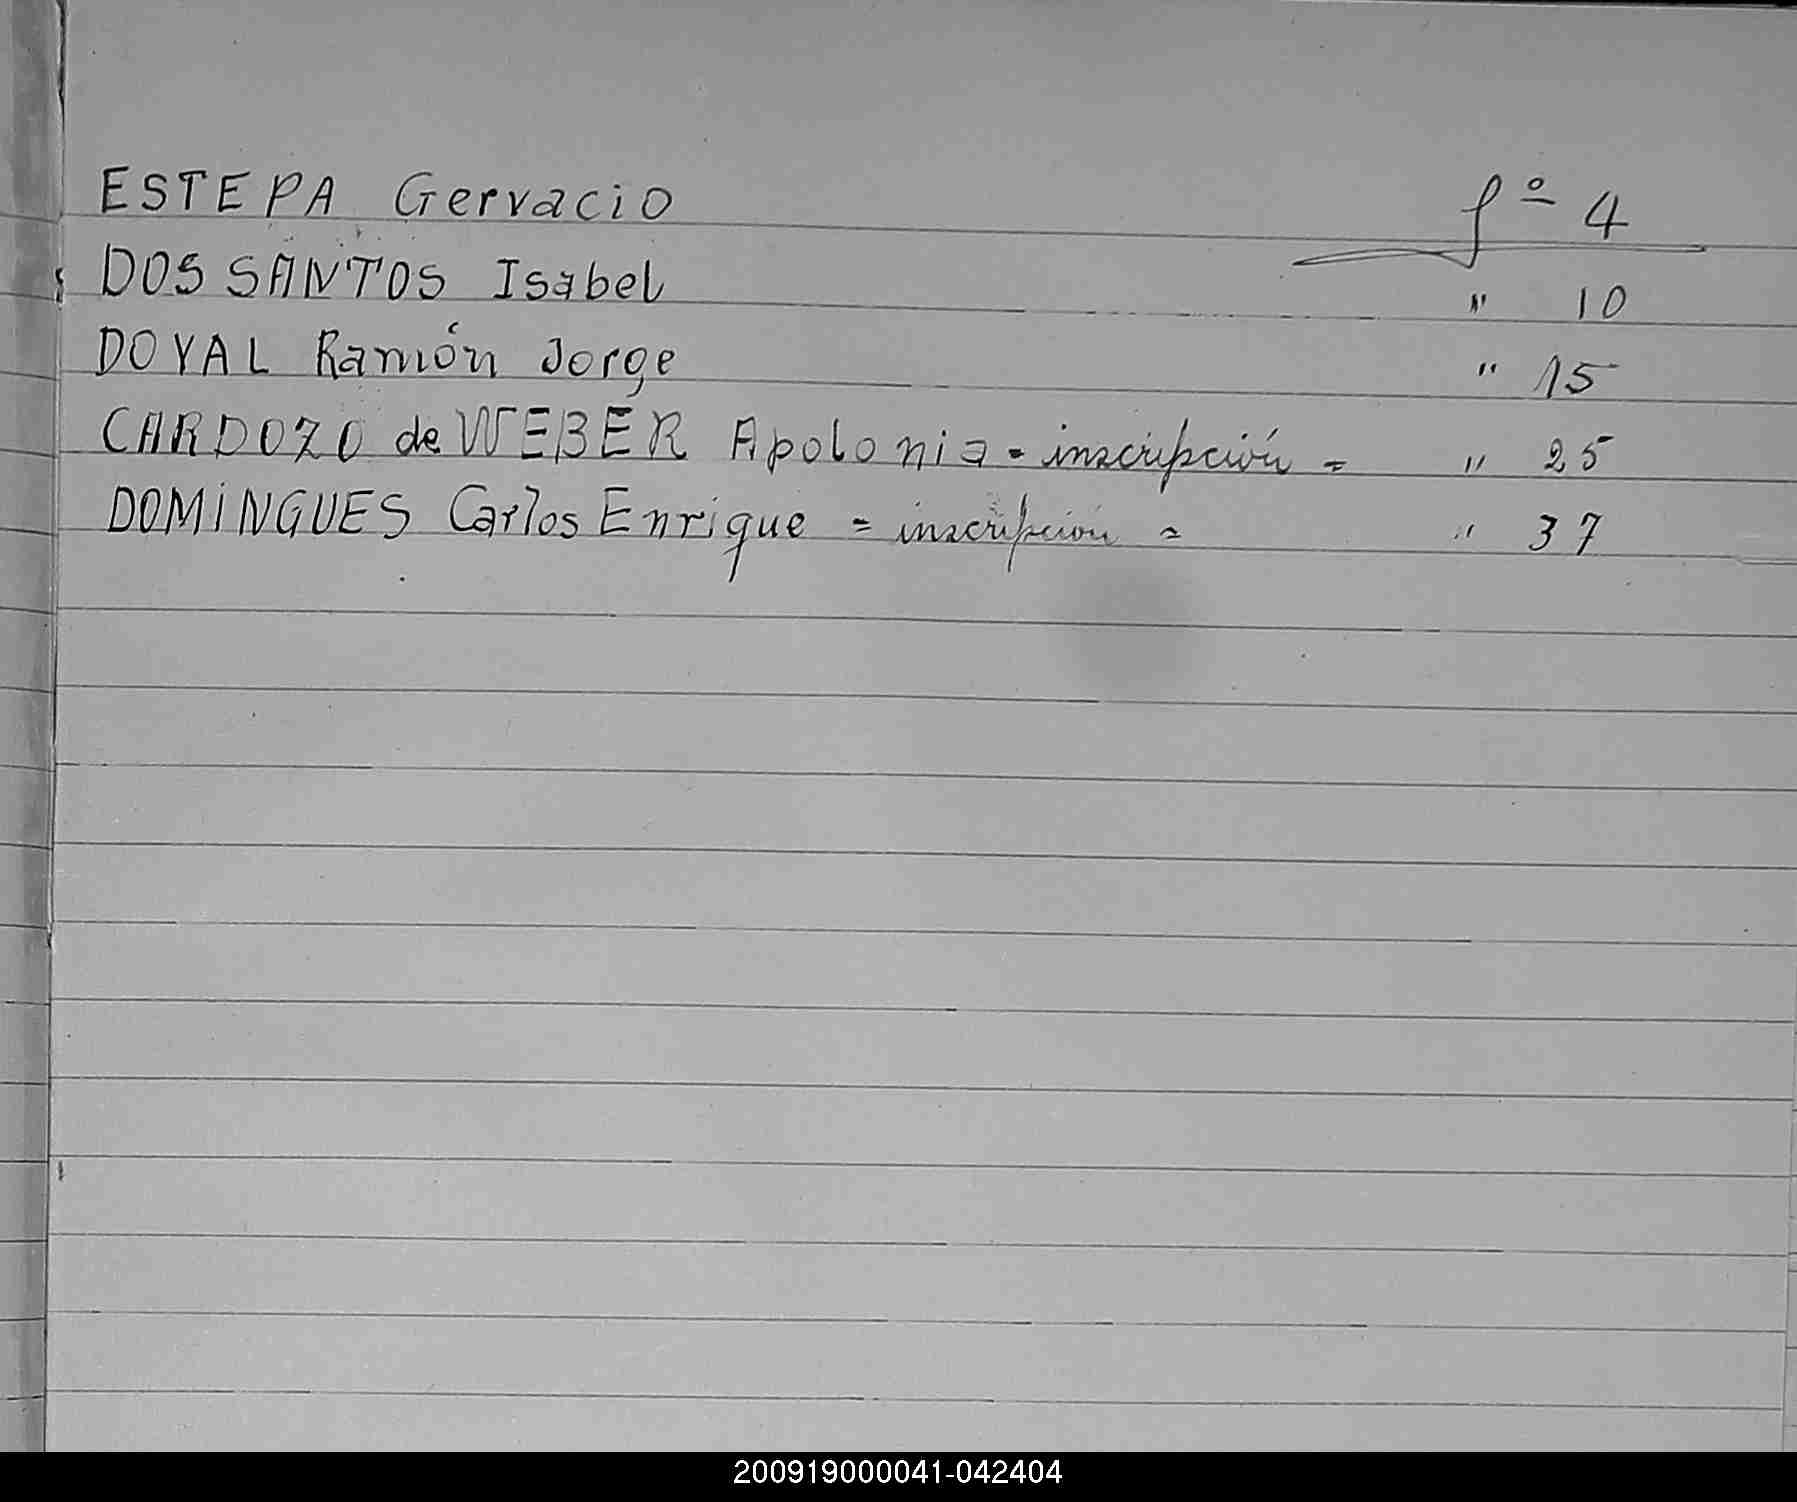 ESTEPA Gervacio fº 4
DOS SANTOS Isabel " 10
DOYAL Ramón Jorge " 15
CARDOZO de WEBER Apolonia - inscripción = " 25
DOMINGUES Carlos Enrique = inscripción = " 37
200919000041-042404